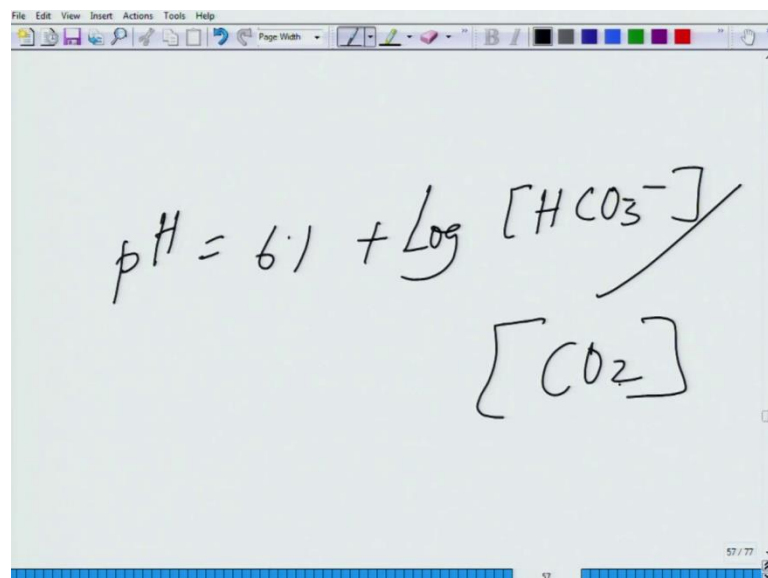 File Edit View Insert Actions Tools Help
Page Width
pH = 6.1 + Log [HCO3⁻] /
[CO2]
57 / 77
57